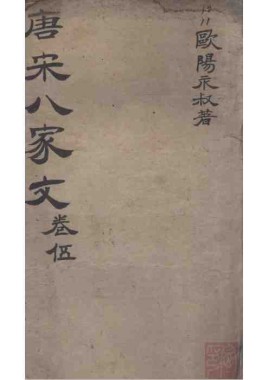 歐陽永叔著
唐宋八家文
卷伍